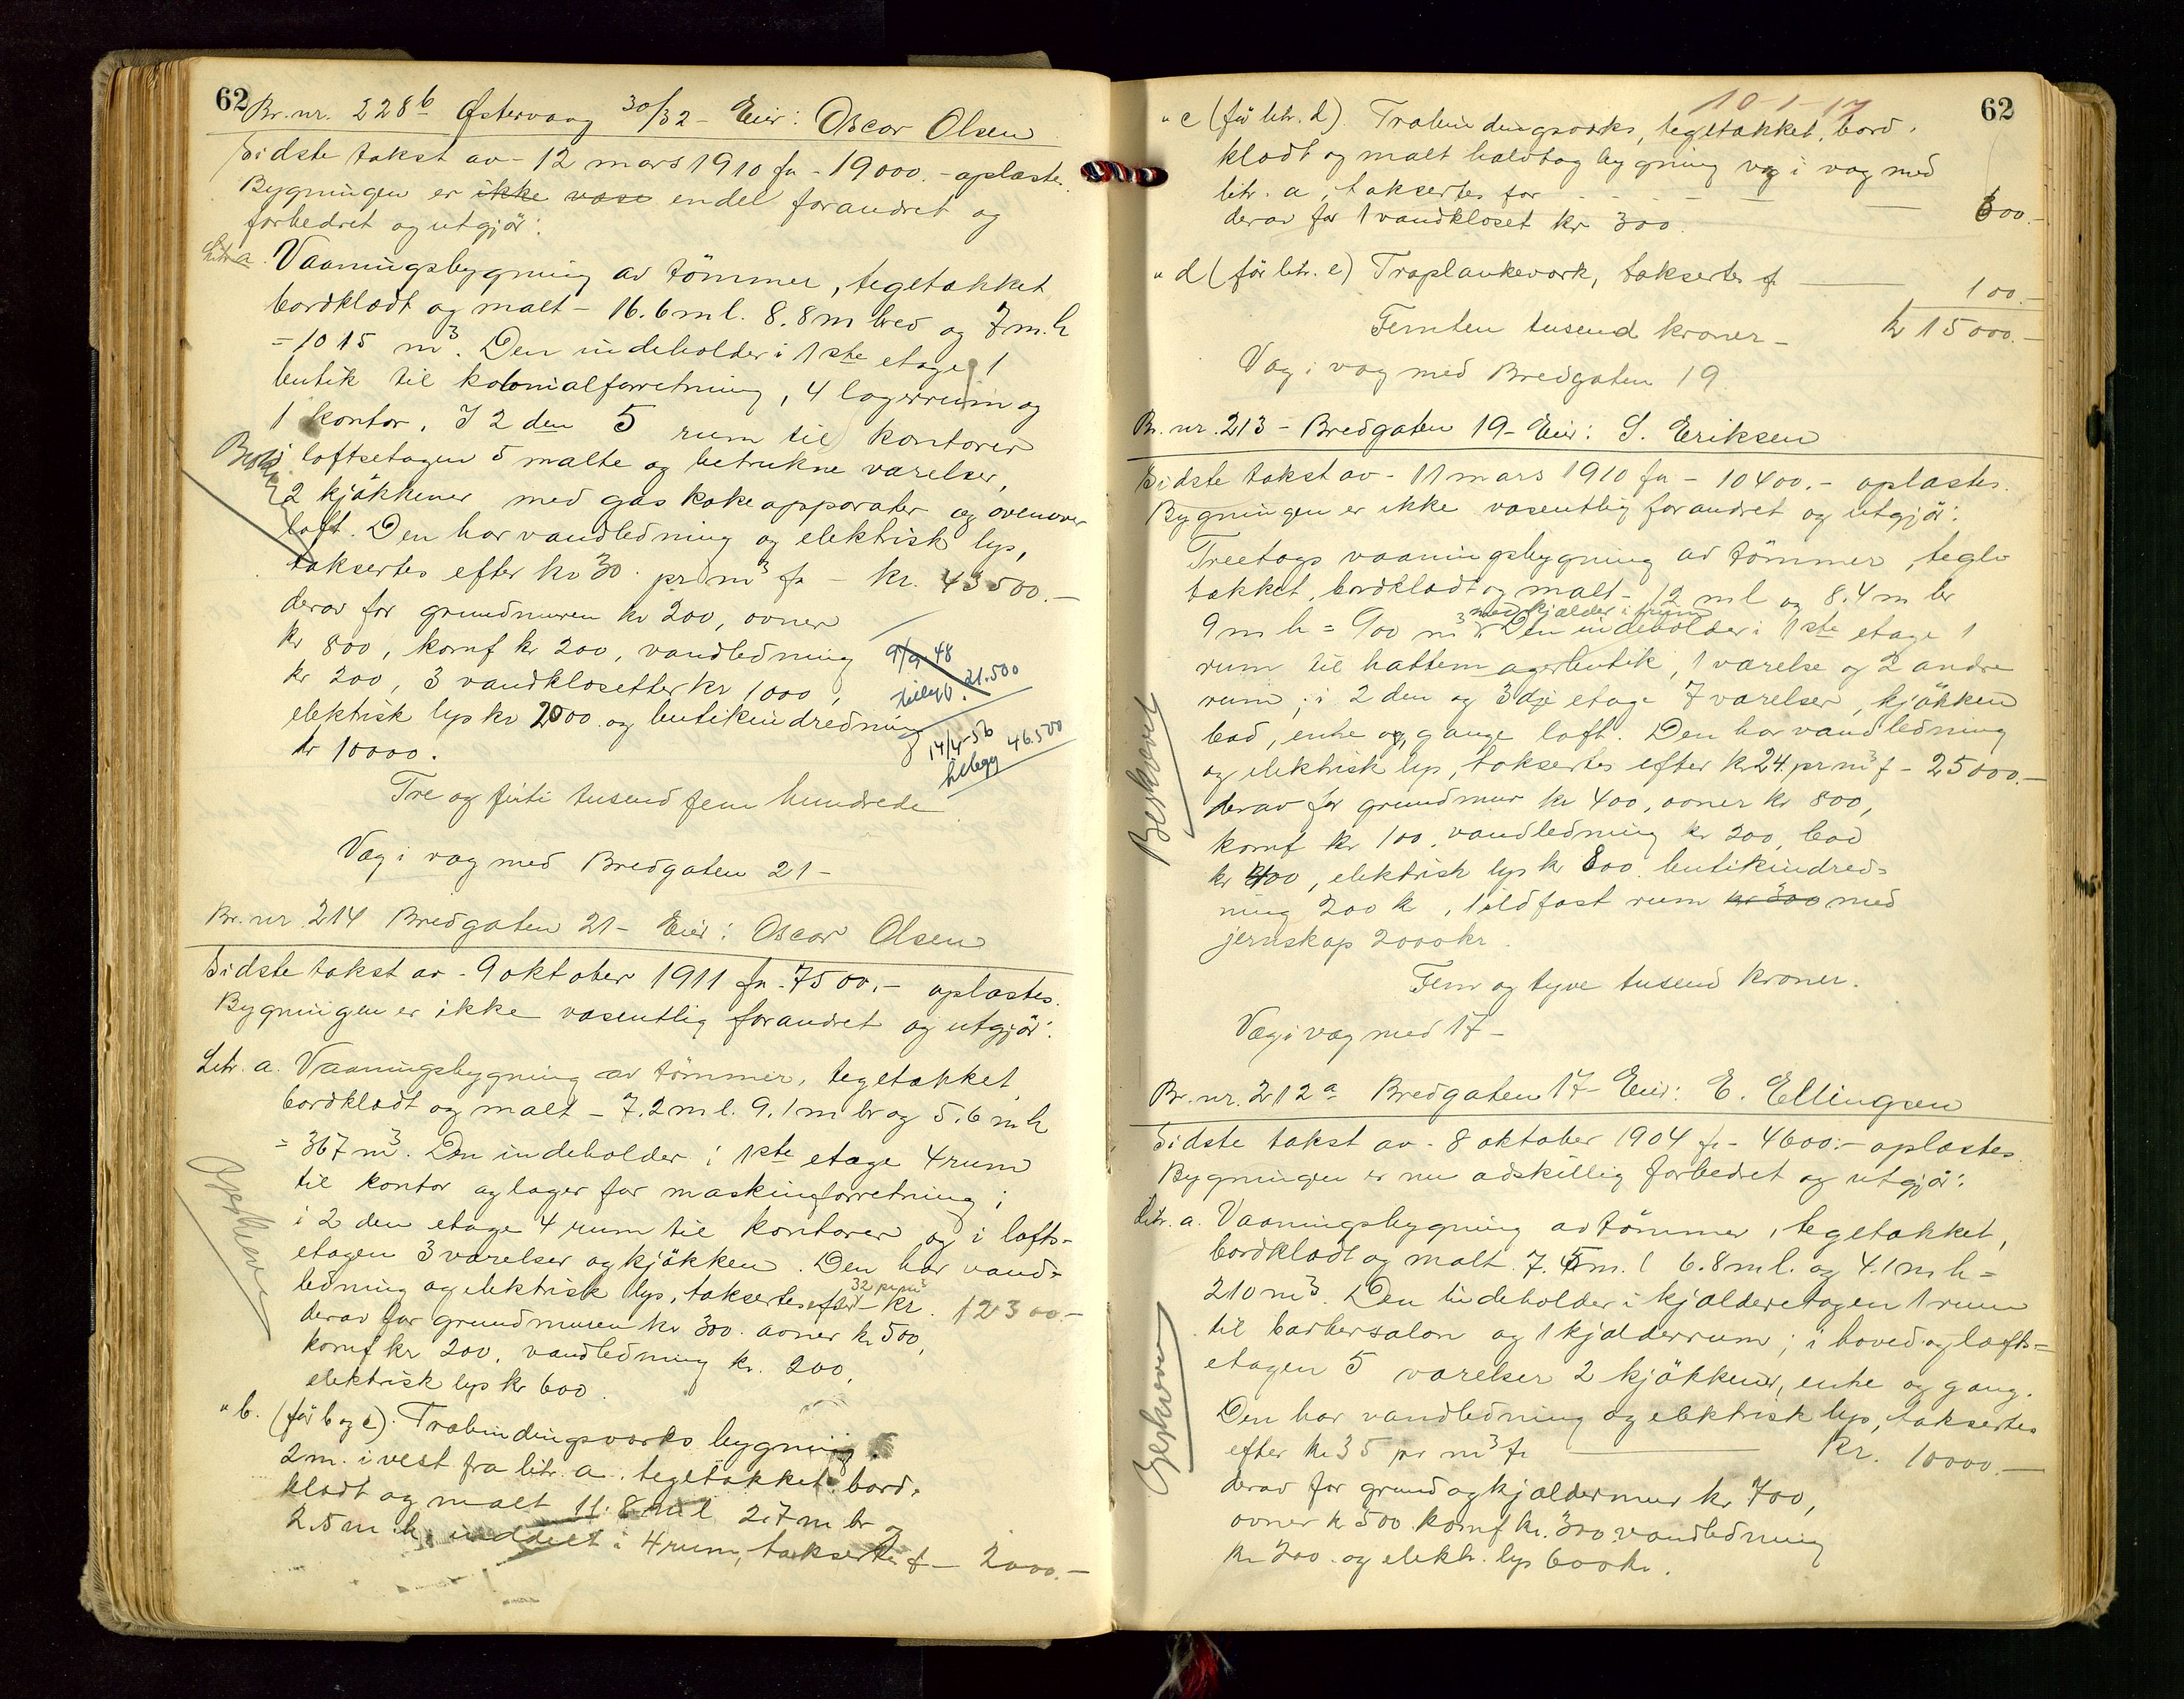 62
Br. nr. 228b Østervaag 30/32 - Eier: Oscar Olsen
Sidste takst av - 12 mars 1910 fr - 19000.- oplæstes.
Bygningen er ikke væse endel forandret og
forbedret og utgjør:
Litr. a. Vaaningsbygning av tømmer, tegltækket
bordklædt og malt - 16.6 m l. 8.8 m bred og 7 m. h
= 1015 m3. Den indeholder i 1ste etage 1
butik til kolonialforretning, 4 lagerrum og
1 kontor. I 2den 5 rum til kontorer
i loftsetagen 5 malte og betrukne værelser,
2 kjøkkener med gas kokeapparater og ovenover
loft. Den har vandledning og elektrisk lys,
taksertes efter kr 30 pr m3 fr - kr. 43500.-
derav for grundmuren kr 200, ovner
kr 800, komf kr 200, vandledning
kr 200, 3 vandklosetter kr 1000,
elektrisk lys kr 2000 og butikindredning
kr 10000.
9/9-48
tillegg. 21.500
14/4-56
tillegg 46.500
Tre og firti tusend fem hundrede
Væg i væg med Bredgaten 21 -
Br. nr 214 Bredgaten 21 - Eier: Oscar Olsen
Sidste takst av - 9 oktober 1911 fr - 7500.- oplæstes.
Bygningen er ikke væsentlig forandret og utgjør:
Litr. a. Vaaningsbygning av tømmer, tegltækket
bordklædt og malt - 7.2 m l. 9.1 m br og 5.6 m h
= 367 m3. Den indeholder i 1ste etage 4 rum
til kontor og lager for maskinforretning;
i 2den etage 4 rum til kontorer og i lofts-
etagen 3 værelser og kjøkken. Den har vand-
ledning og elektrisk lys, taksertes efter 32 pr m3 - kr. 12300.-
derav for grundmuren kr 300. ovner kr 500,
komf kr 200. vandledning kr. 200,
elektrisk lys kr 600.
" b. (før b og c). Træbindingsverks bygning
2 m. i vest fra litr. a. tegltækket bord-
klædt og malt 11.8 m l 2.7 m br og
2.5 m h, inddelt i 4 rum, taksertes f - 2000.-
62
10-1-17
" c (før litr. d). Træbindingsværks, tegltækket, bord-
klædt og malt halvtag bygning væg i væg med
litr. a, taksertes for - - - - 600.-
derav for 1 vandkloset kr 300.
" d (før litr. e) Træplankeverk, taksertes f 100.-
Femten tusend kroner - kr 15000.-
Væg i væg med Bredgaten 19.
Br. nr. 213 - Bredgaten 19 - Eier: S. Eriksen
Sidste takst av - 11 mars 1910 fr - 10400.- oplæstes.
Bygningen er ikke væsentlig forandret og utgjør:
Treetages vaaningsbygning av tømmer, tegl-
tækket, bordklædt og malt - 12 m l og 8.4 m br
9 m h = 900 m3 med kjælder i 1 rum. Den indeholder i 1ste etage 1
rum til hattemagerbutik, 1 værelse og 2 andre
rum; i 2den og 3dje etage 7 værelser, kjøkken
bad, entre og gange loft. Den har vandledning
og elektrisk lys, taksertes efter kr 24. pr m3 f - 25000.-
derav for grundmur kr 400, ovner kr 800,
komf kr 100, vandledning kr 200, bad
kr 400, elektrisk lys kr 800. butikindred-
ning 200 kr, 1 ildfast rum kr 300 med
jernskap 2000 kr.
Fem og tyve tusend kroner.
Væg i væg med 17 -
Br. nr. 212a Bredgaten 17 - Eier: E. Ellingsen
Sidste takst av - 8 oktober 1904 fr - 4600.- oplæstes.
Bygningen er nu adskillig forbedret og utgjør:
Litr. a. Vaaningsbygning av tømmer, tegltækket,
bordklædt og malt. 7.5 m. l 6.8 m l. og 4.1 m h =
210 m3. Den indeholder i kjælderetagen 1 rum
til barbersalon og 1 kjælderrum; i hoved og lofts-
etagen 5 værelser 2 kjøkkener, entre og gang.
Den har vandledning og elektrisk lys, taksertes
efter kr 35 pr m3 fr Kr. 10000.-
derav for grund og kjældermur kr 700,
ovner kr 500. komf kr. 300 vandledning
kr 200. og elektr. lys 600 kr.